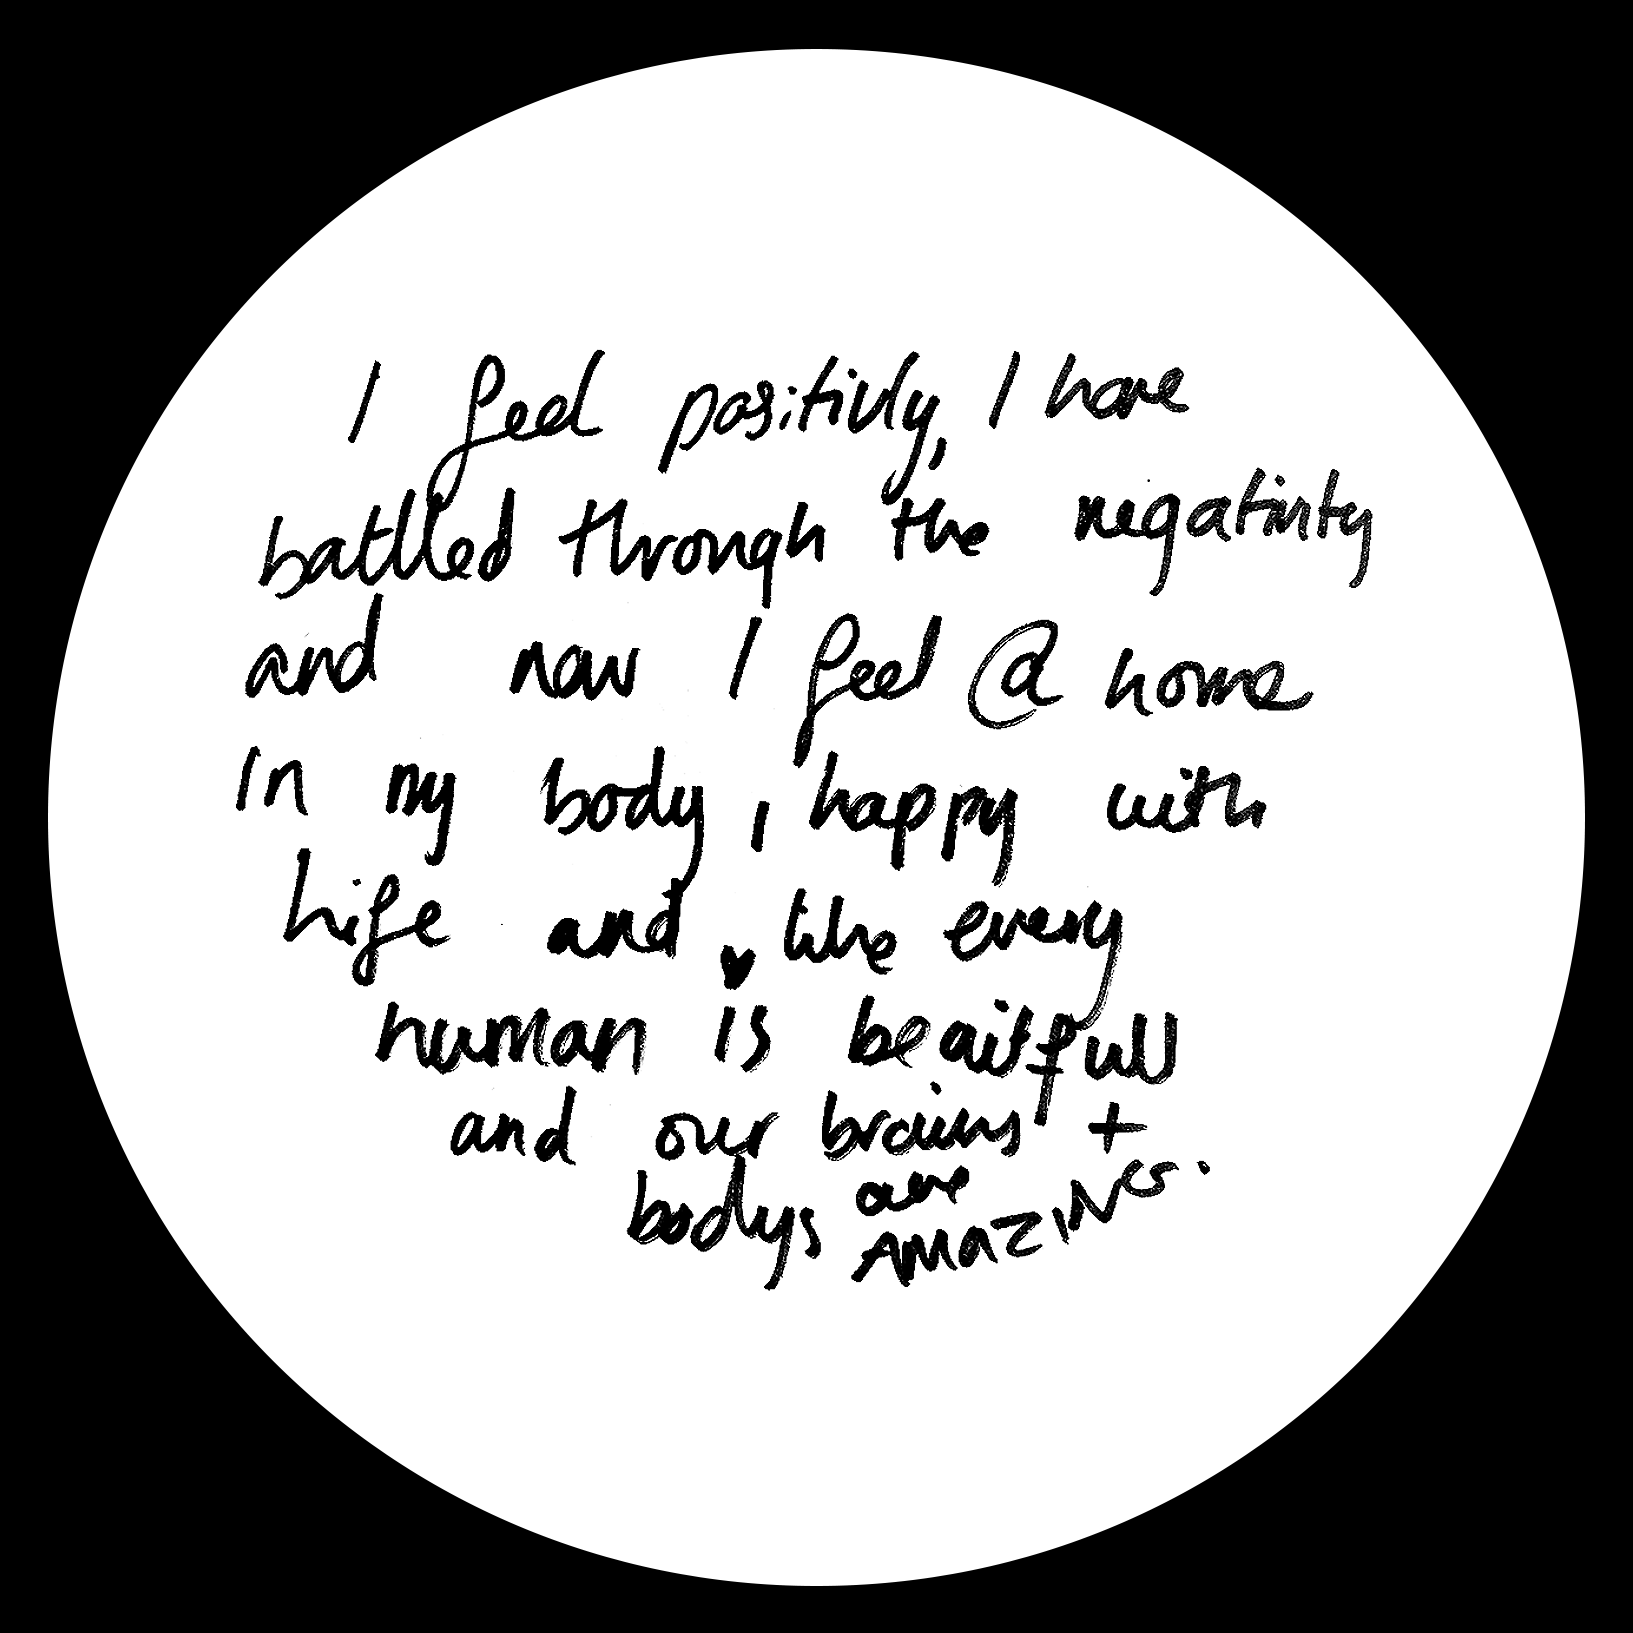 I feel positivly, I have
battled through the negativity
and now I feel @ home
in my body, happy with
life and like every
human is beaitfull
and our brains +
bodys are
AMAZING.